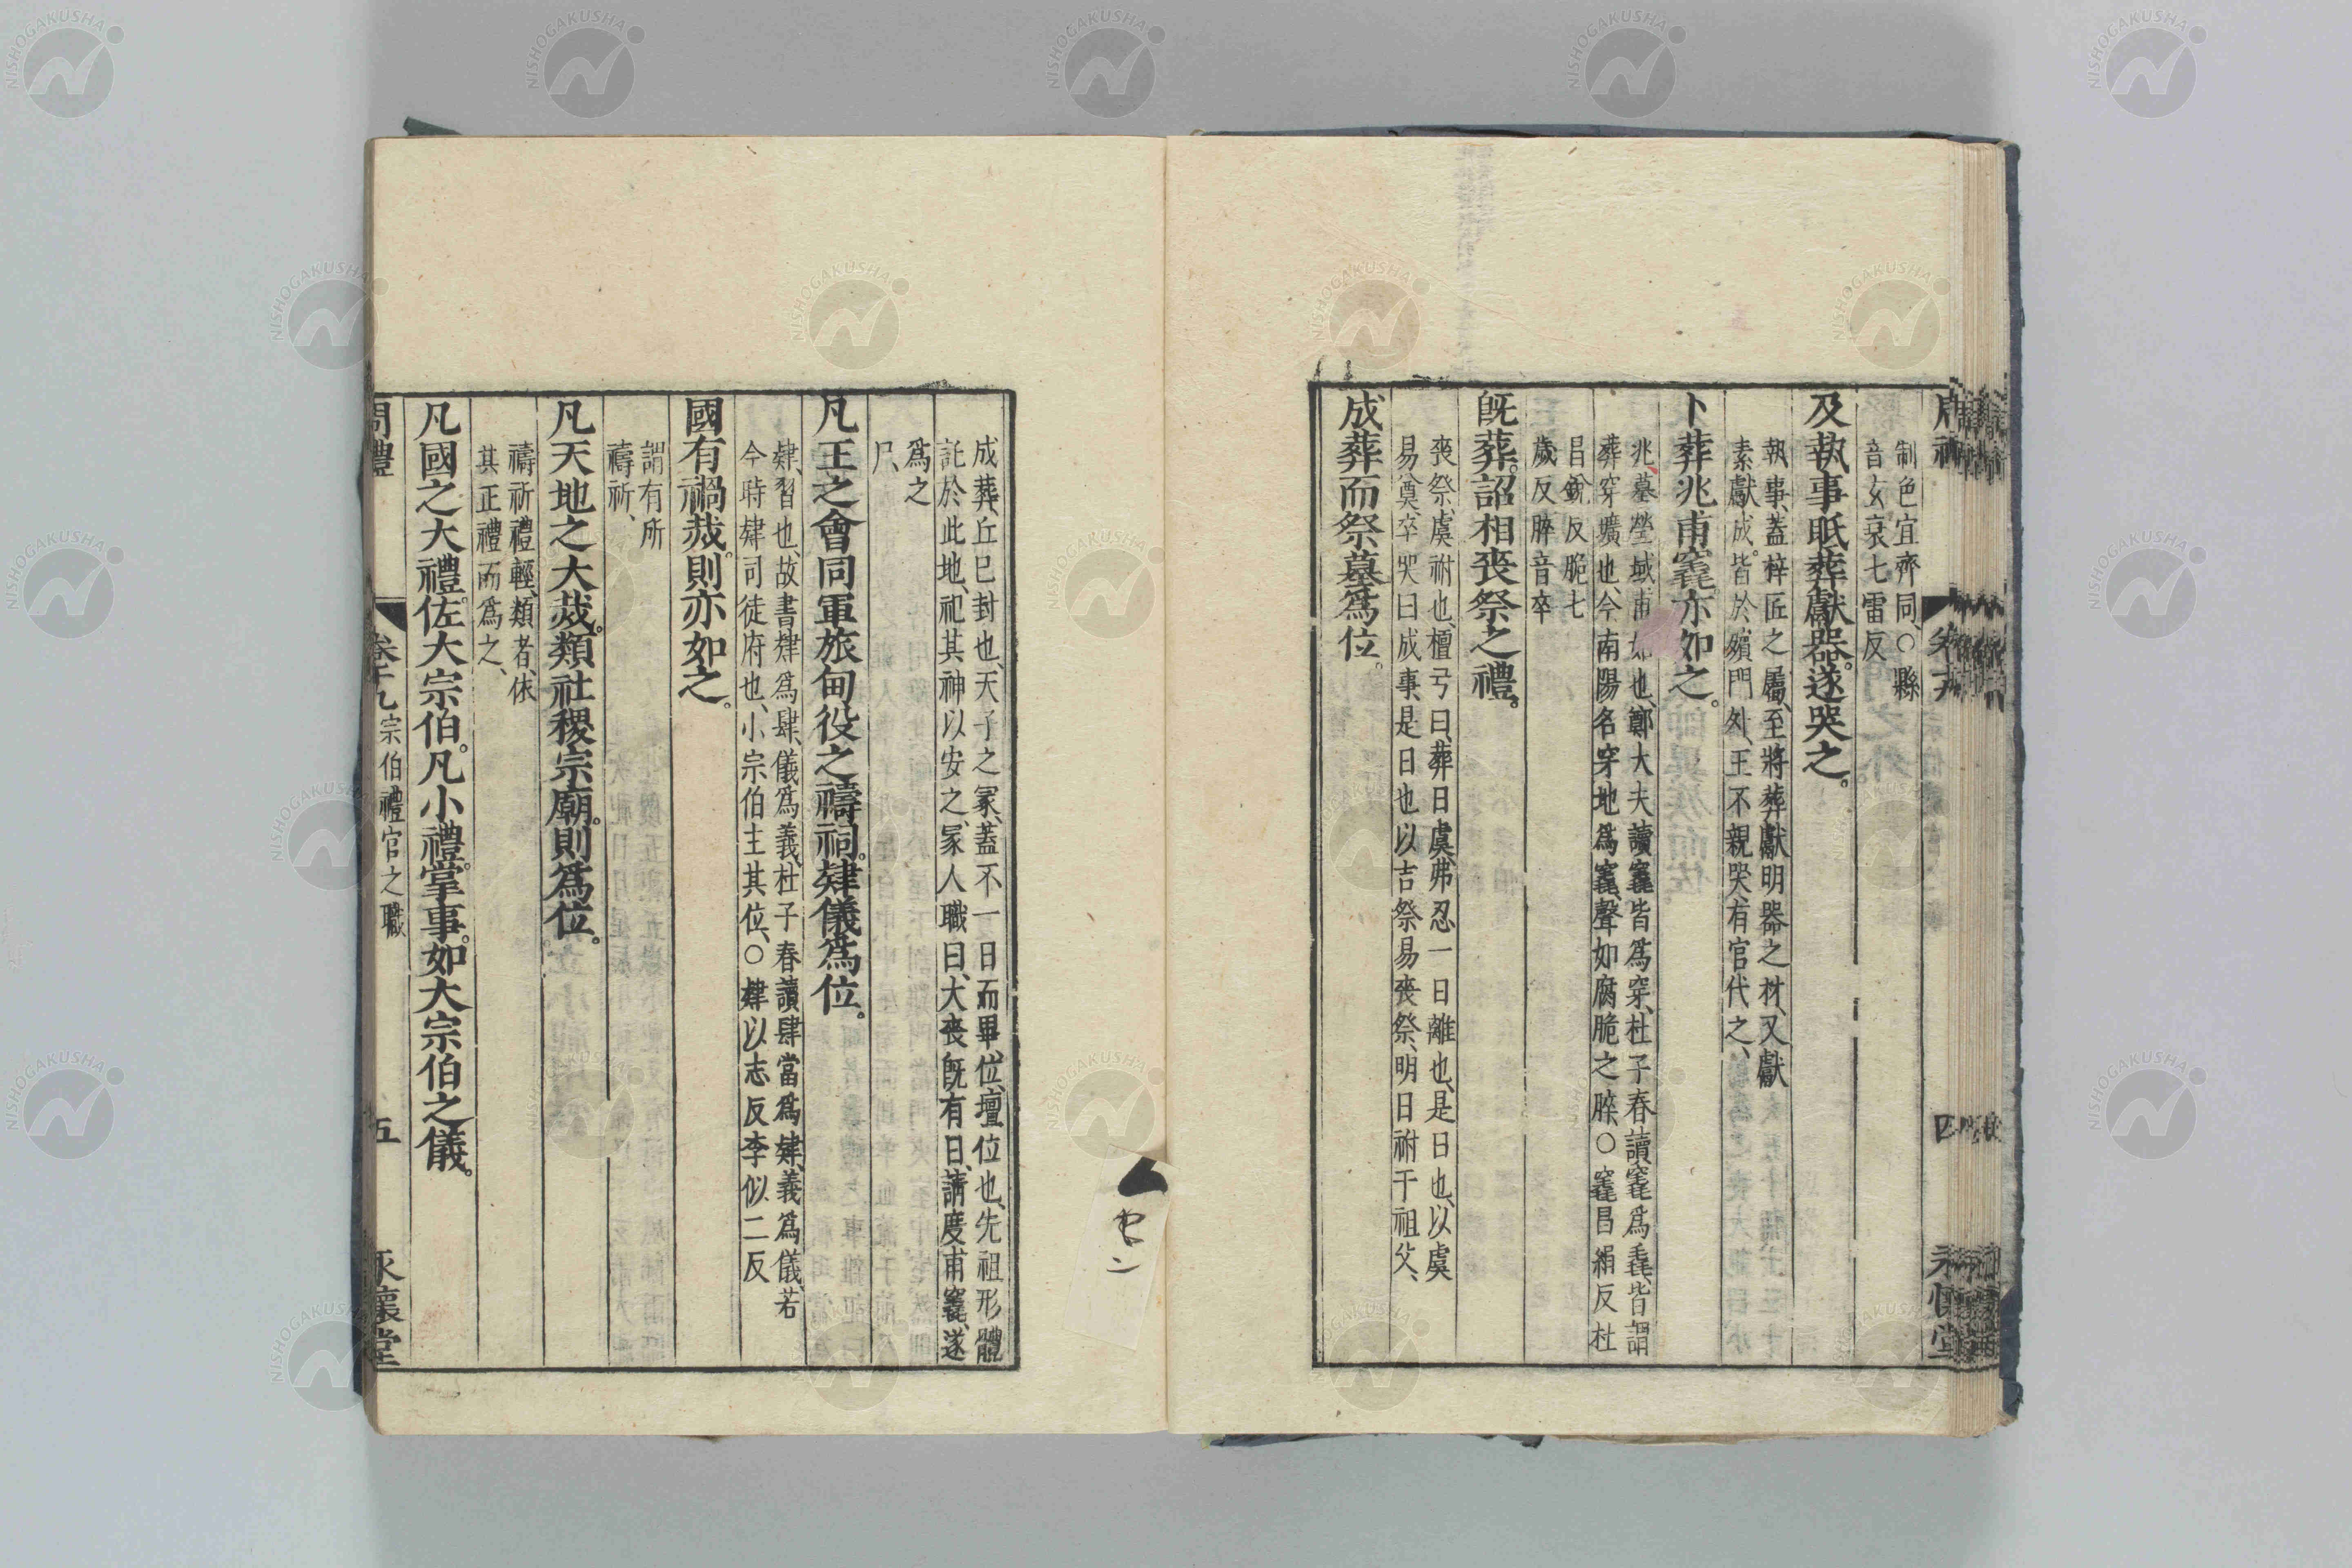 制色宜齊同○縣
音玄衰七雷反
及執事眡葬獻器。遂哭之。
執事、蓋梓匠之屬、至將葬獻明器之材、又獻
素獻成。皆於殯門外、王不親哭、有官代之、
卜葬兆甫竁。亦如之。
兆、墓塋域甫始也、鄭大夫讀竁皆爲穿、杜子春讀竁爲毳、皆謂
葬穿壙也、今南陽名穿地爲竁、聲如腐脆之脺、○竁昌絹反杜
昌銳反脆七
歲反脺音卒
旣葬。詔相喪祭之禮。
喪祭、虞祔也、檀弓曰、葬日虞、弗忍一日離也、是日也、以虞
易奠、卒哭曰成事、是日也以吉祭易喪祭、明日祔于祖父、
成葬而祭墓爲位。
成葬、丘已封也、天子之冢、蓋不一日而畢、位、壇位也、先祖形體
託於此地、祀其神以安之、冢人職曰、大喪旣有日、請度甫竁、遂
爲之
尸、
凡王之會同軍旅甸役之禱祠。肄儀爲位。
肄、習也、故書肄爲肆、儀爲義、杜子春讀肆當爲肄、義爲儀、若
今時肄司徒府也、小宗伯主其位、○肄以志反李似二反
國有禍烖。則亦如之。
謂有所
禱祈、
凡天地之大烖。類社稷宗廟。則爲位。
禱祈禮輕、類者、依
其正禮而爲之、
凡國之大禮。佐大宗伯。凡小禮。掌事。如大宗伯之儀。
周禮 卷十九 宗伯禮官之職 五 永懷堂
セン
NISHOGAKUSHA